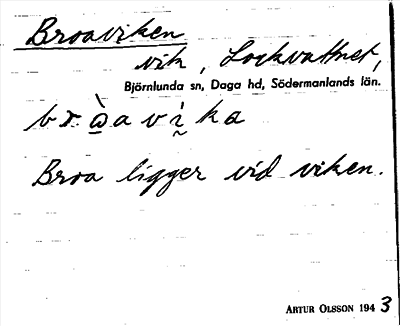 Broaviken
vik, Lockvattnet,
Björnlunda sn, Daga hd, Södermanlands län.
Broa ligger vid viken.
ARTUR OLSSON 1943